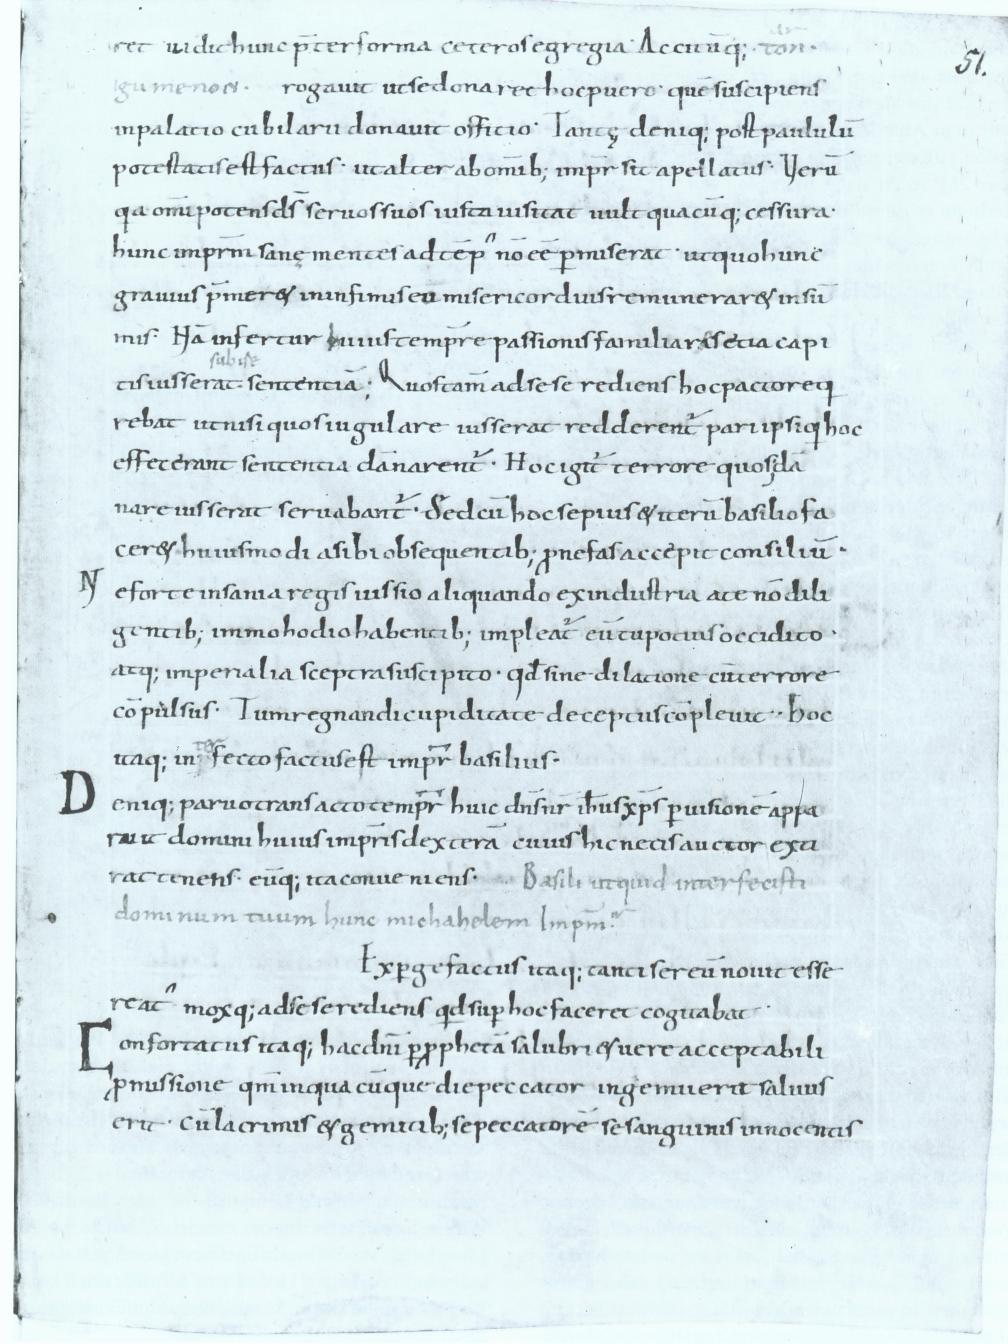 51.
ret uidic hunc p̄ter forma ceteros egregia· Accitūq;
gumenon· rogauit ut sedonaret hoc puero· que suscipiens
inpalacio cubilarii donauit officio· Tantę deniq; post paululū
potestatis est factus· ut alter ab omīb; imp̄r sit apellatus· Verū
qa om̄ipotens ds̄ seruos suos iusta uisitat uult quacūq; cessura·
hunc inprm̄ sanę mentes ad tēp noēē pmiserat· ut quo hunc
grauius p̄mer& in infimis eū misericordius remunerar& in sū
mis· Nā infertur huius tempr̄e passionis familiares etia capi
sub ise
tis iusserat sententiā; Quos tam̄ ad se se rediens hoc pacto req
rebat ut nisi quos iugulare iusserat redderent̄ pari ipsi q hoc
effecerant sententia dānarent̄· Hoc igit̄ terrore quos dā
nare iusserat seruabant̄· Sed cū hoc sepius & iterū basilio fa
cer& huiusmodi a sibi obsequentib; pnefas accepit consiliū·
N eforte insania regis iussio aliquando ex industria a te nōdili
gentib; immo hodio habentib; impleat̄ eū tu pocius occidito·
atq; imperialia sceptra suscipito· qd̄ sine dilatione cū terrore
cōpulsus· Tum regnandi cupiditate deceptus cōpleuit·· hoc
itaq; inter fecto factus est imp̄r basilius·
D eniq; paruo transacto temp̄r huic dn̄s n̄r ih̄us xp̄s puisionē appa
ruit domini huius imp̄ris dexterā cuius hic necis auctor exti
rat tenens· eūq; ita conueniens· Basili utquid interfecisti
dominum tuum hunc michahelem Impm̄
Expgefactus itaq; tanti sereū nouit esse
reat moxq; ad se se rediens qd sup hoc faceret cogitabat·
C onfortatus itaq; hac dn̄i p pphetā salubri & uere acceptabili
pmissione qm̄ in qua cūque die peccator ingemuerit saluus
erit· Cū lacrimis & gemitib; se peccatorē se sanguinis innocentis